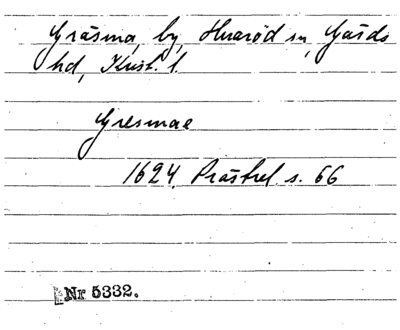 Gräsma, by, Hvaröd sn, Gärds
hd, Krist. l.
Gresmae
1624. Prästrel. s. 66
Nr 5332.